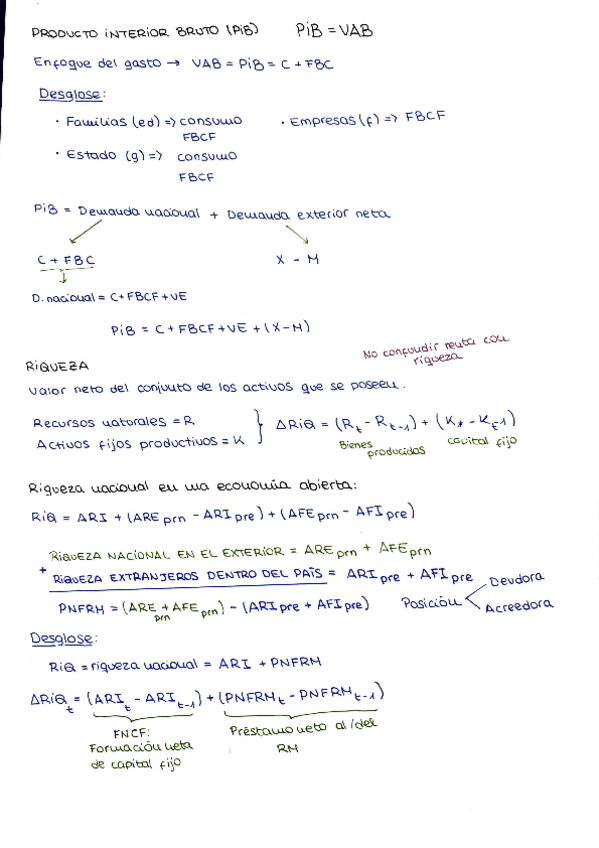 PRODUCTO INTERIOR BRUTO (PiB) PiB = VAB
Enfoque del gasto → VAB = PiB = C + FBC
Desglose:
· Familias (ed) => consumo · Empresas (f) => FBCF
FBCF
· Estado (g) => consumo
FBCF
PiB = Demanda nacional + Demanda exterior neta
C + FBC X - M
D. nacional = C + FBCF + VE
PiB = C + FBCF + VE + (X - M)
No confundir renta con
riqueza
RiQUEZA
Valor neto del conjunto de los activos que se poseen.
Recursos naturales = R
Activos fijos productivos = K
ΔRiQ = (R_t - R_t-1) + (K_* - K_t-1)
Bienes producidos capital fijo
Riqueza nacional en una economía abierta:
RiQ = ARI + (ARE prn - ARI pre) + (AFE prn - AFI pre)
RiQUEZA NACIONAL EN EL EXTERIOR = ARE prn + AFE prn
+ RiQUEZA EXTRANJEROS DENTRO DEL PAÍS = ARI pre + AFI pre
PNFRM = (ARE prn + AFE prn) - (ARI pre + AFI pre) Posición Deudora
Acreedora
Desglose:
RiQ = riqueza nacional = ARI + PNFRM
ΔRiQ_t = (ARI_t - ARI_t-1) + (PNFRM_t - PNFRM_t-1)
FNCF: Préstamo neto al/del
Formación neta RM
de capital fijo